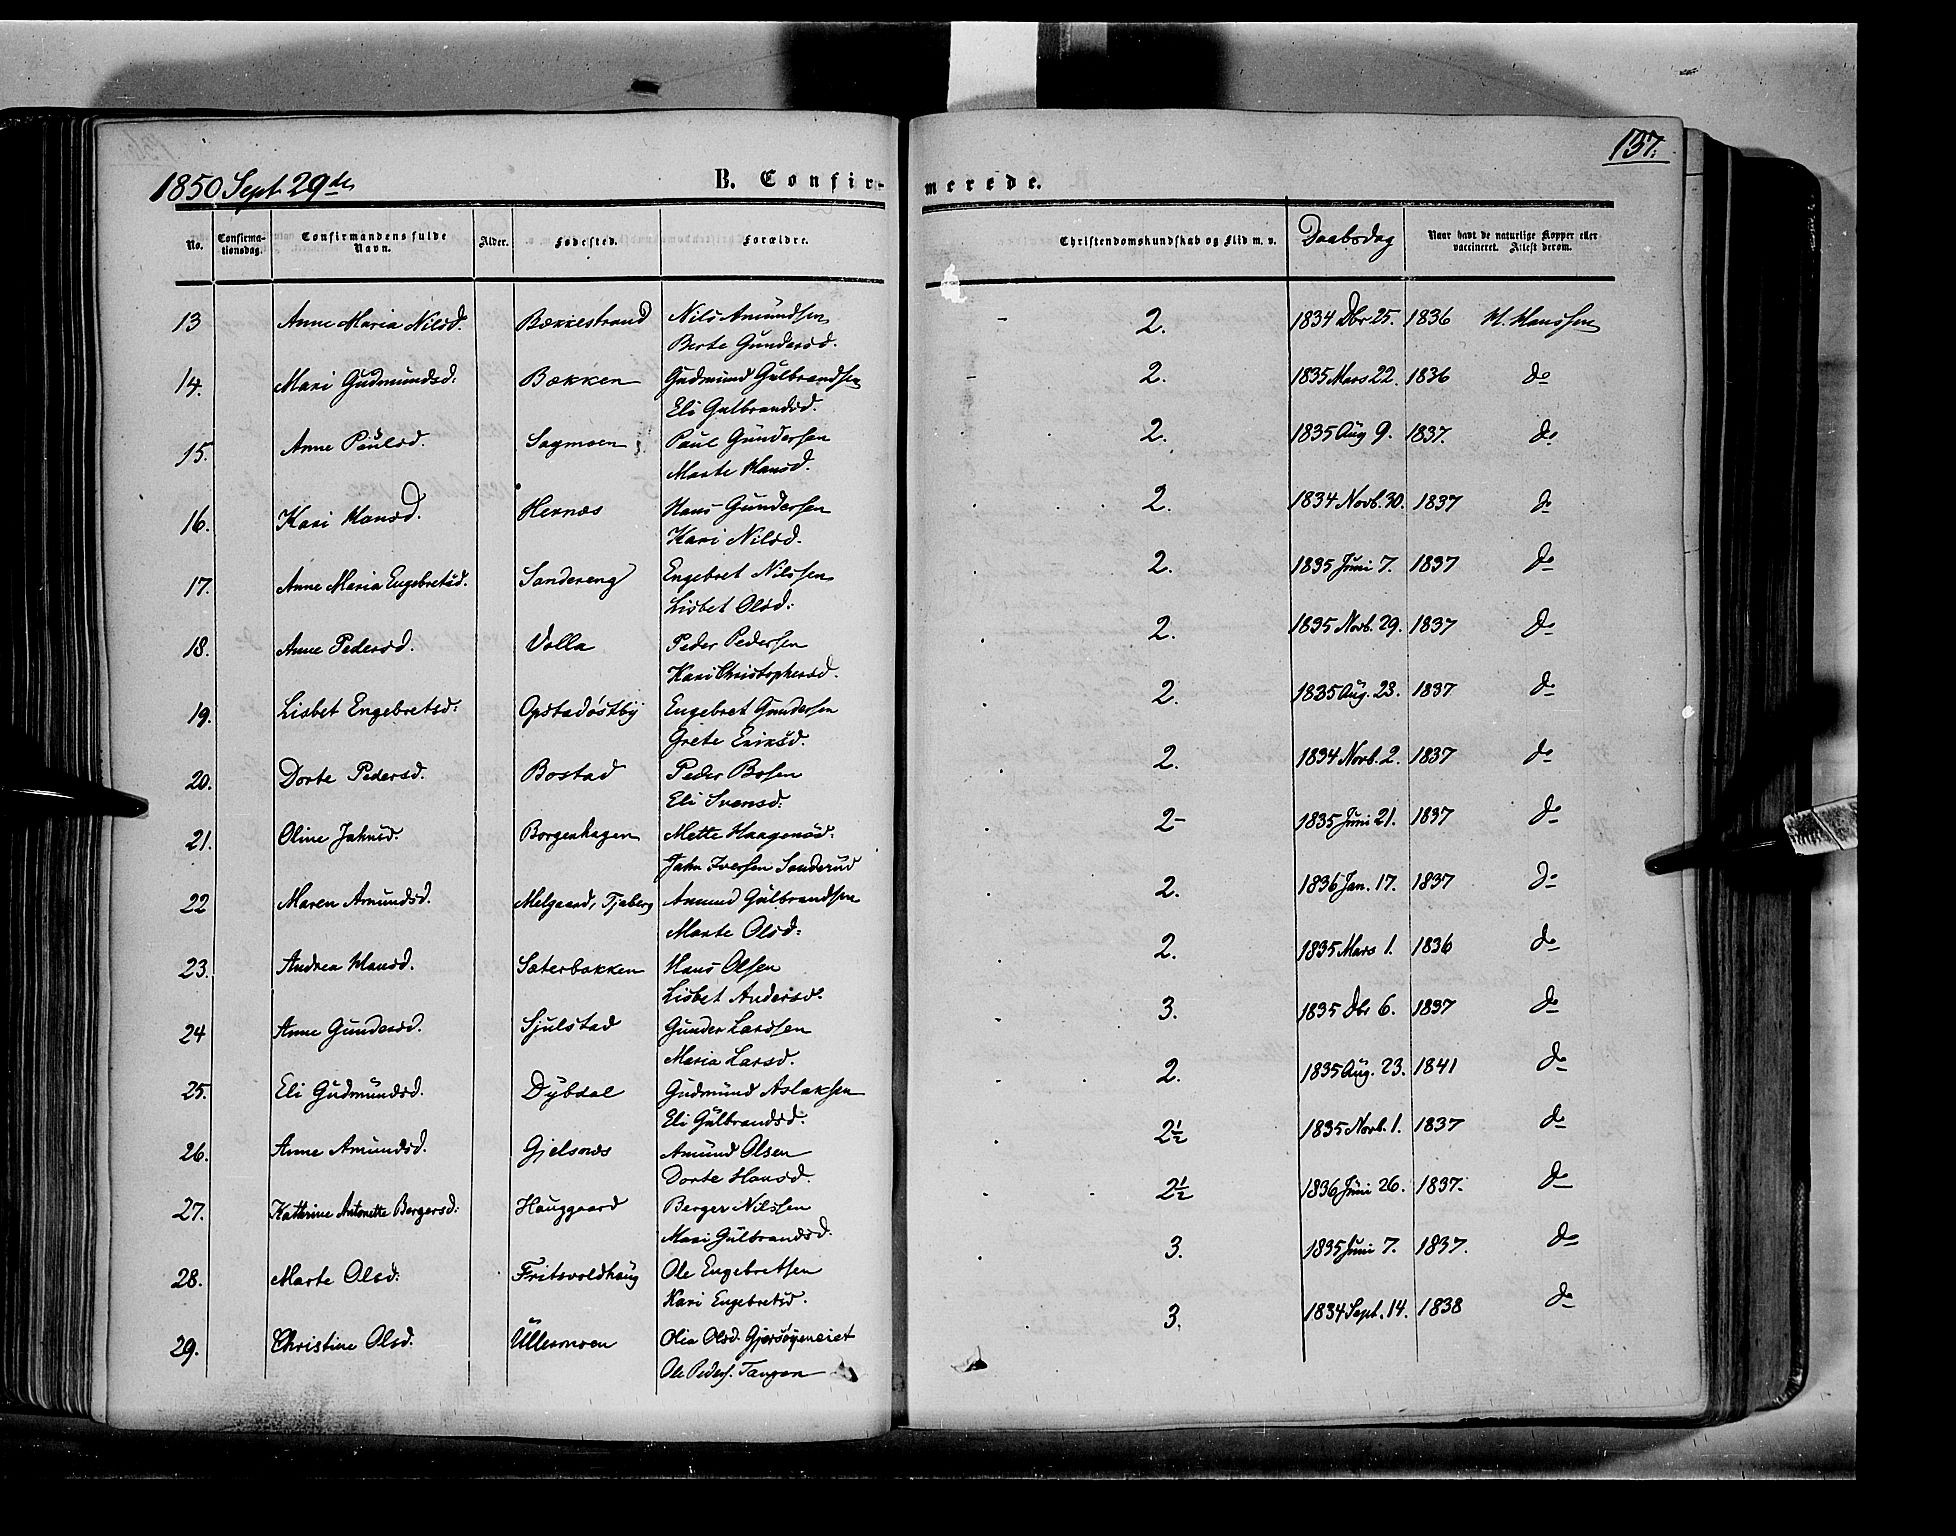 137.
1850 Sept. 29de
B. Confir-
merede.
No.
Confirma-
tionsdag.
Confirmandens fulde
Navn.
Alder.
Fødested.
Forældre.
Christendomskundskab og Flid m. v.
Daabsdag
Naar havt de naturlige Kopper eller
vaccineret. Attest derom.
13 Anne Maria Nilsd. Bækkestrand Nils Amundsen 2. 1834 Dbr 25. 1836 H. Hanssen
Berte Gundersd.
14. Mari Gudmundsd: Bækken Gudmund Gulbrandsen 2. 1835 Mars 22. 1836 do
Eli Gulbrandsd.
15. Anne Paulsd. Sagmoen Paul Gundersen 2. 1835 Aug 9. 1837. do
Marte Hansd.
16. Kari Hansd. Hernæs Hans Gundersen 2. 1834 Novb. 30. 1837 do
Kari Nilsd.
17. Anne Maria Engebretsd. Sandereng Engebret Nilssen 2. 1835 Juni 7. 1837 do
Lisbet Olsd:
18. Anne Pedersd. Volla Peder Pedersen 2. 1835 Novb. 29. 1837 do
Kari Christophersd.
19. Lisbet Engebretsd: Opstadøstby Engebret Gundersen 2. 1835 Aug. 23. 1837 do
Grete Eriksd.
20. Dorte Pedersd. Bostad Peder Bosen 2. 1834 Novb. 2. 1837 do
Eli Svensd:
21. Oline Jahnsd. Borgenhagen Mette Haagensd: 2- 1835 Juni 21. 1837 do
Jahn Iversen Sanderud
22 Maren Amundsd. Melgaard, Tjaberg Amund Gulbrandsen 2. 1836 Jan. 17. 1837 do
Marte Olsd:
23. Andrea Hansd. Sæterbakken Hans Olsen 2. 1835 Mars 1. 1836 do
Lisbet Andersd.
24 Anne Gundersd. Sjulstad Gunder Larssen 3. 1835 Dbr 6. 1837 do
Maria Larsd.
25. Eli Gudmundsd. Dybdal Gudmund Aslaksen 2. 1835 Aug. 23. 1841 do
Eli Gulbrandsd:
26. Anne Amundsd. Gjelsnes Amund Olsen 2½ 1835 Novb. 1. 1837 do
Dorte Hansd.
27. Kathrine Antonette Bergersd: Hauggaard Berger Nilssen 2½ 1836 Juni 26. 1837. do
Mari Gulbrandsd.
28. Marte Olsd: Fritsvoldhaug Ole Engebretsen 3. 1835 Juni 7. 1837. do
Kari Engebretsd.
29. Christine Olsd. Ullermoen Olia Olsd. Gjersøgeneiet 3. 1834 Sept. 14. 1838 do
Ole Peders. Tangen